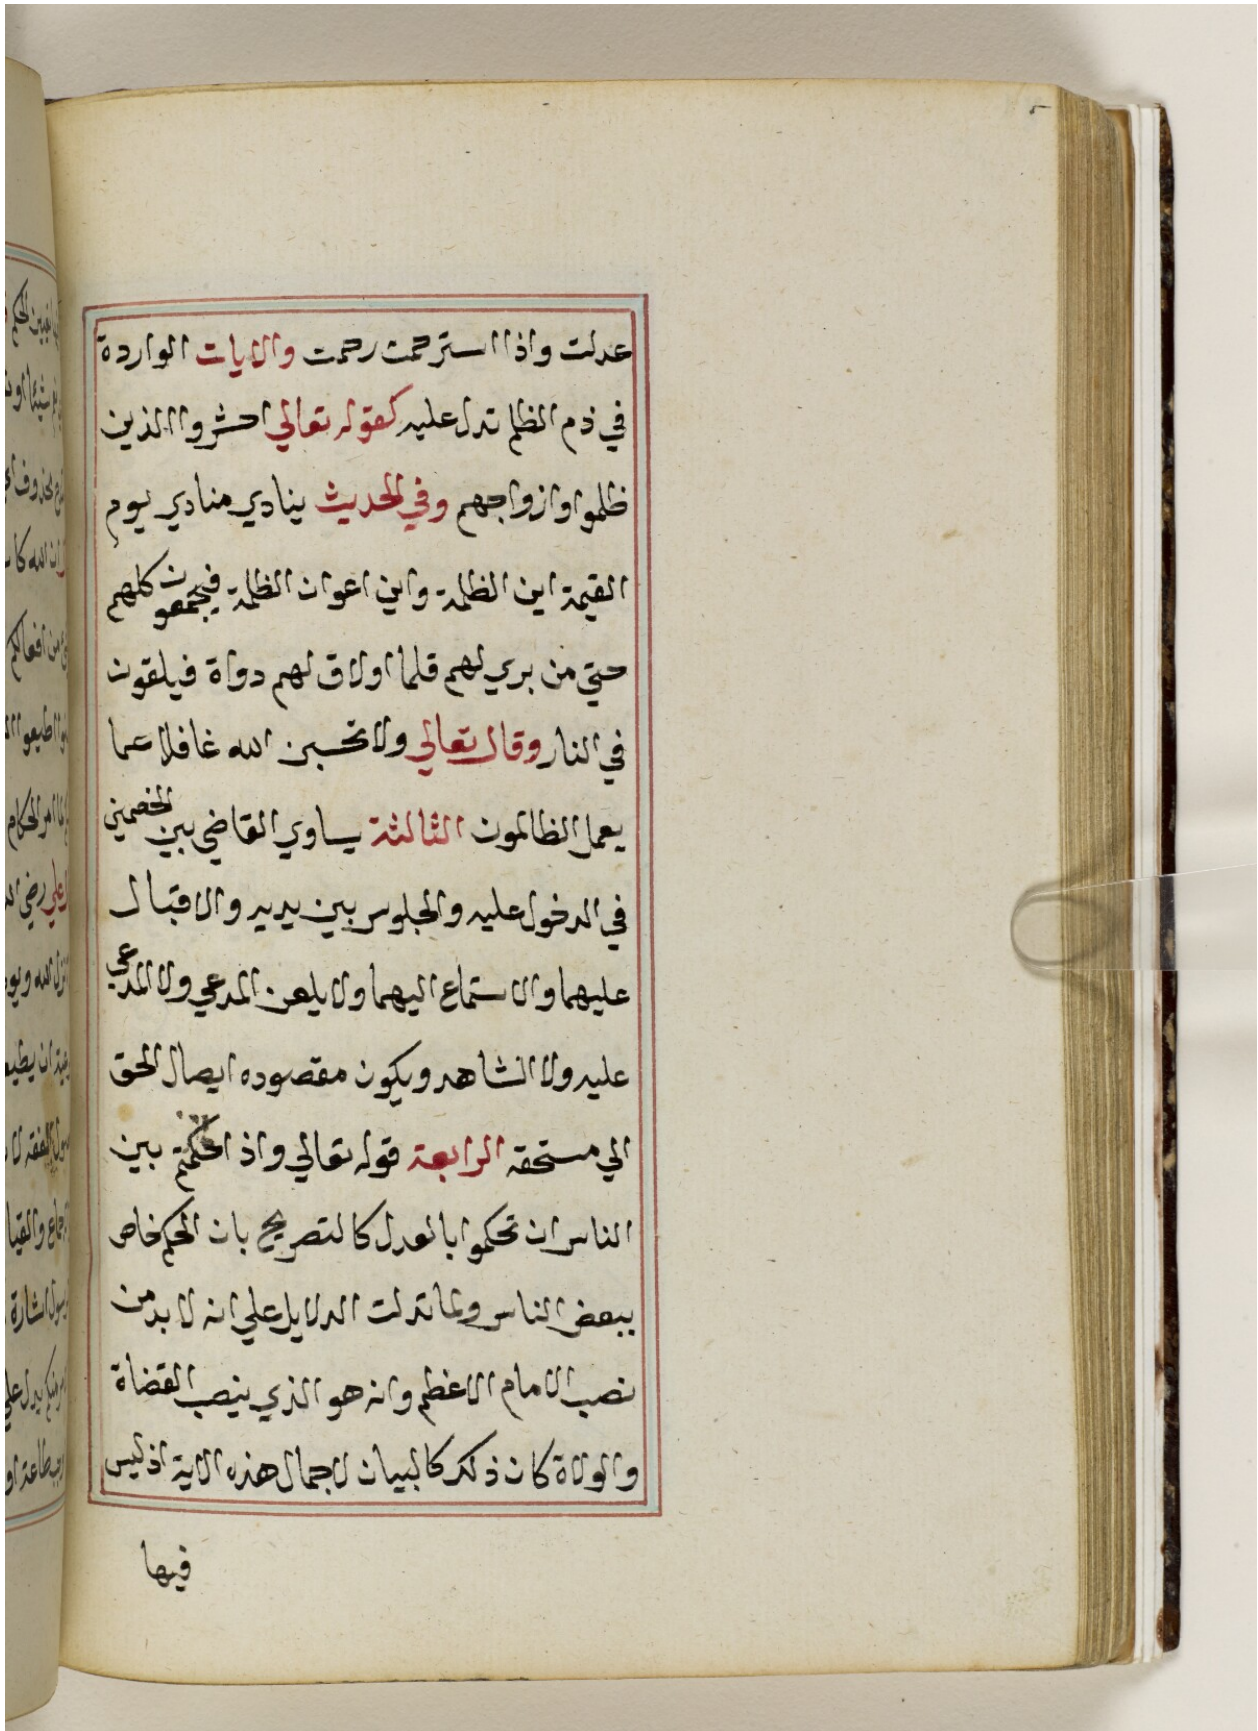 عدلت واذا استرحمت رحمت والايات الواردة
في ذم الظلم تدل عليه كقوله تعالي احشروا الذين
ظلموا وازواجهم وفي الحديث ينادي منادي يوم
القيمة اين الظلمة واين اعوان الظلمة فيجمعون كلهم
حتي من بري لهم قلما اولاق لهم دواة فيلقون
في النار وقال تعالي ولا تحسبن الله غافلا عما
يعمل الظالمون الثالثة يساوي القاضي بين الخصمين
في الدخول عليه والجلوس بين يديه والاقبال
عليهما والاستماع اليهما ولا يلعن المدعي ولا المدعي
عليه ولا الشاهد ويكون مقصوده ايصال الحق
الي مستحقه الرابعة قوله تعالي واذا حكمتم بين
الناس ان تحكموا بالعدل كالتصريح بان الحكم خاص
ببعض الناس ولما تدلت الدلايل علي انه لا بد من
نصب الامام الاعظم وانه هو الذي ينصب القضاة
والولاة كان ذلك كالبيان لاجمال هذه الاية اذ ليس
فيها